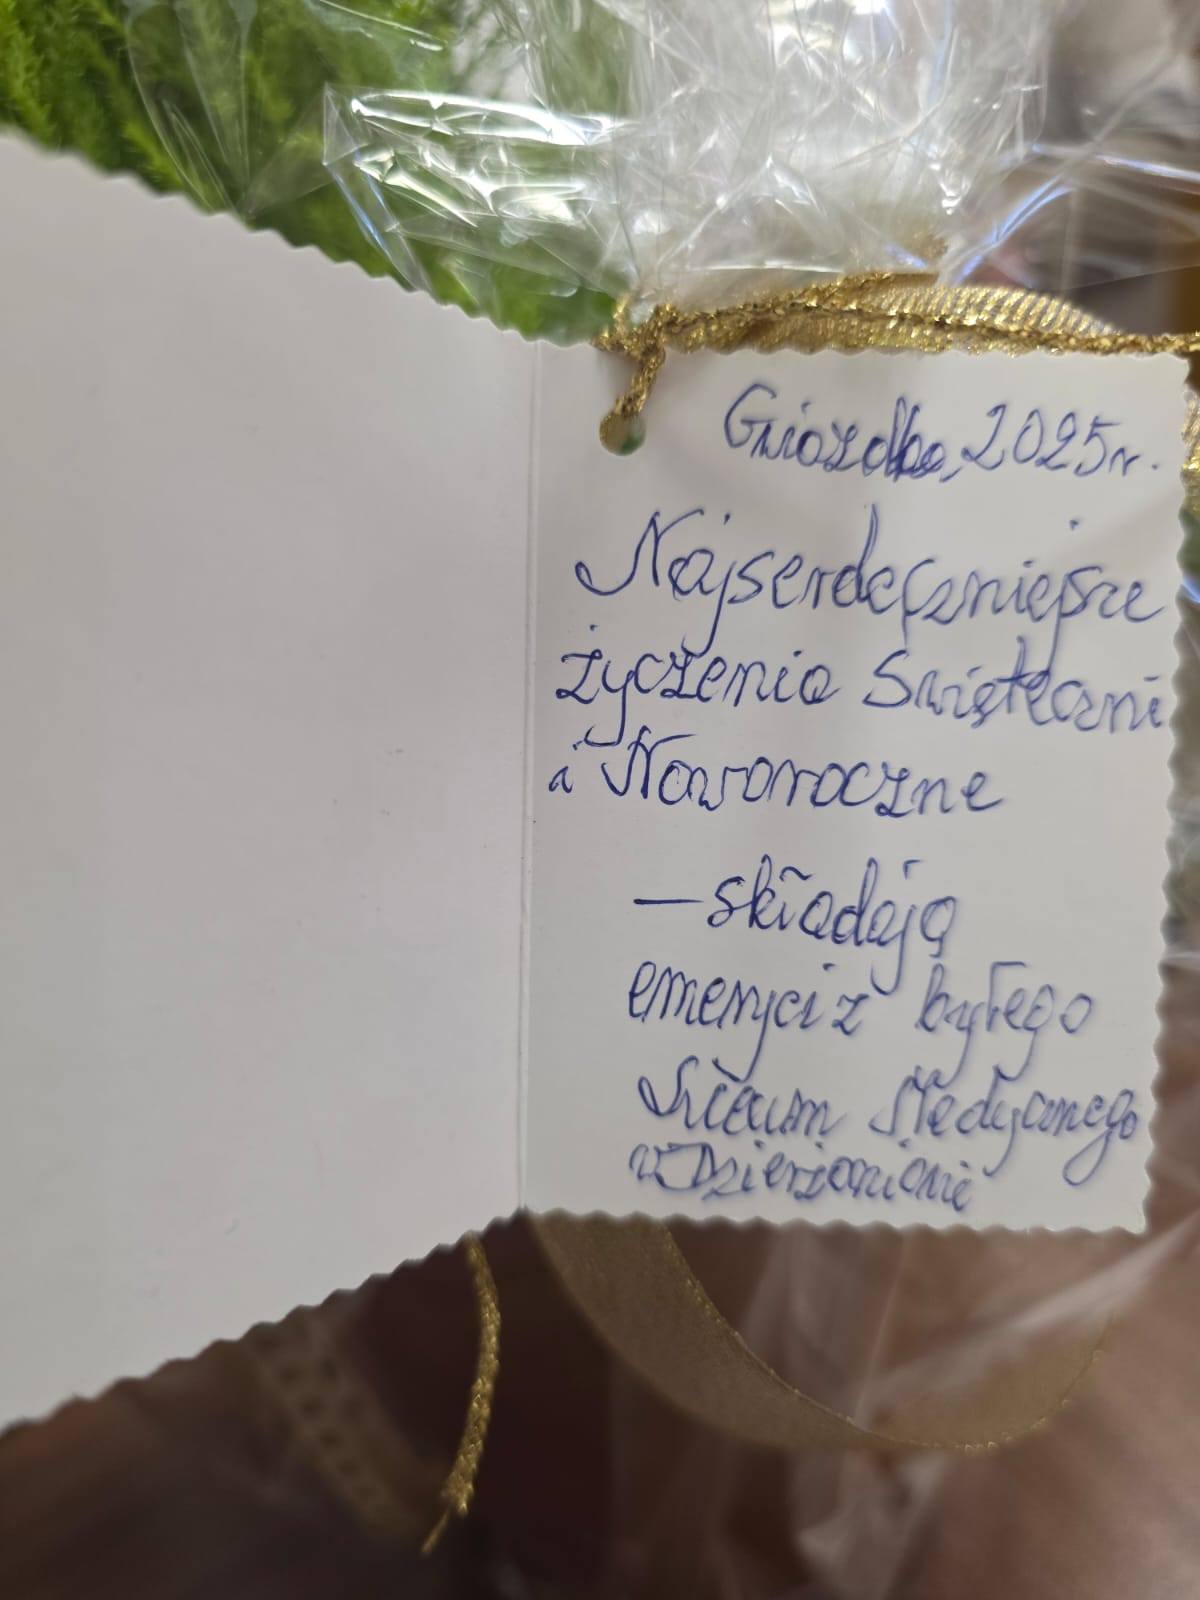 Gwiazdka, 2025r.
Najserdeczniejsze
życzenia Świąteczne
i Noworoczne
— składają
emeryci z byłego
Liceum Medycznego
w Dzierżoniowie